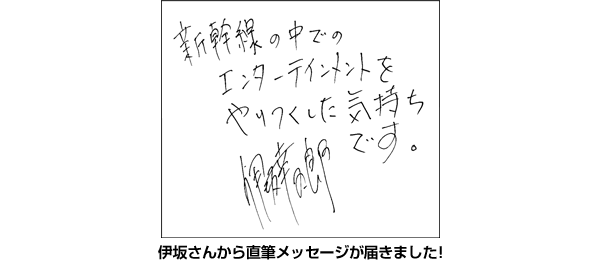 新幹線の中での
エンターテインメントを
やりつくした気持ち
です。
伊坂幸太郎
伊坂さんから直筆メッセージが届きました!